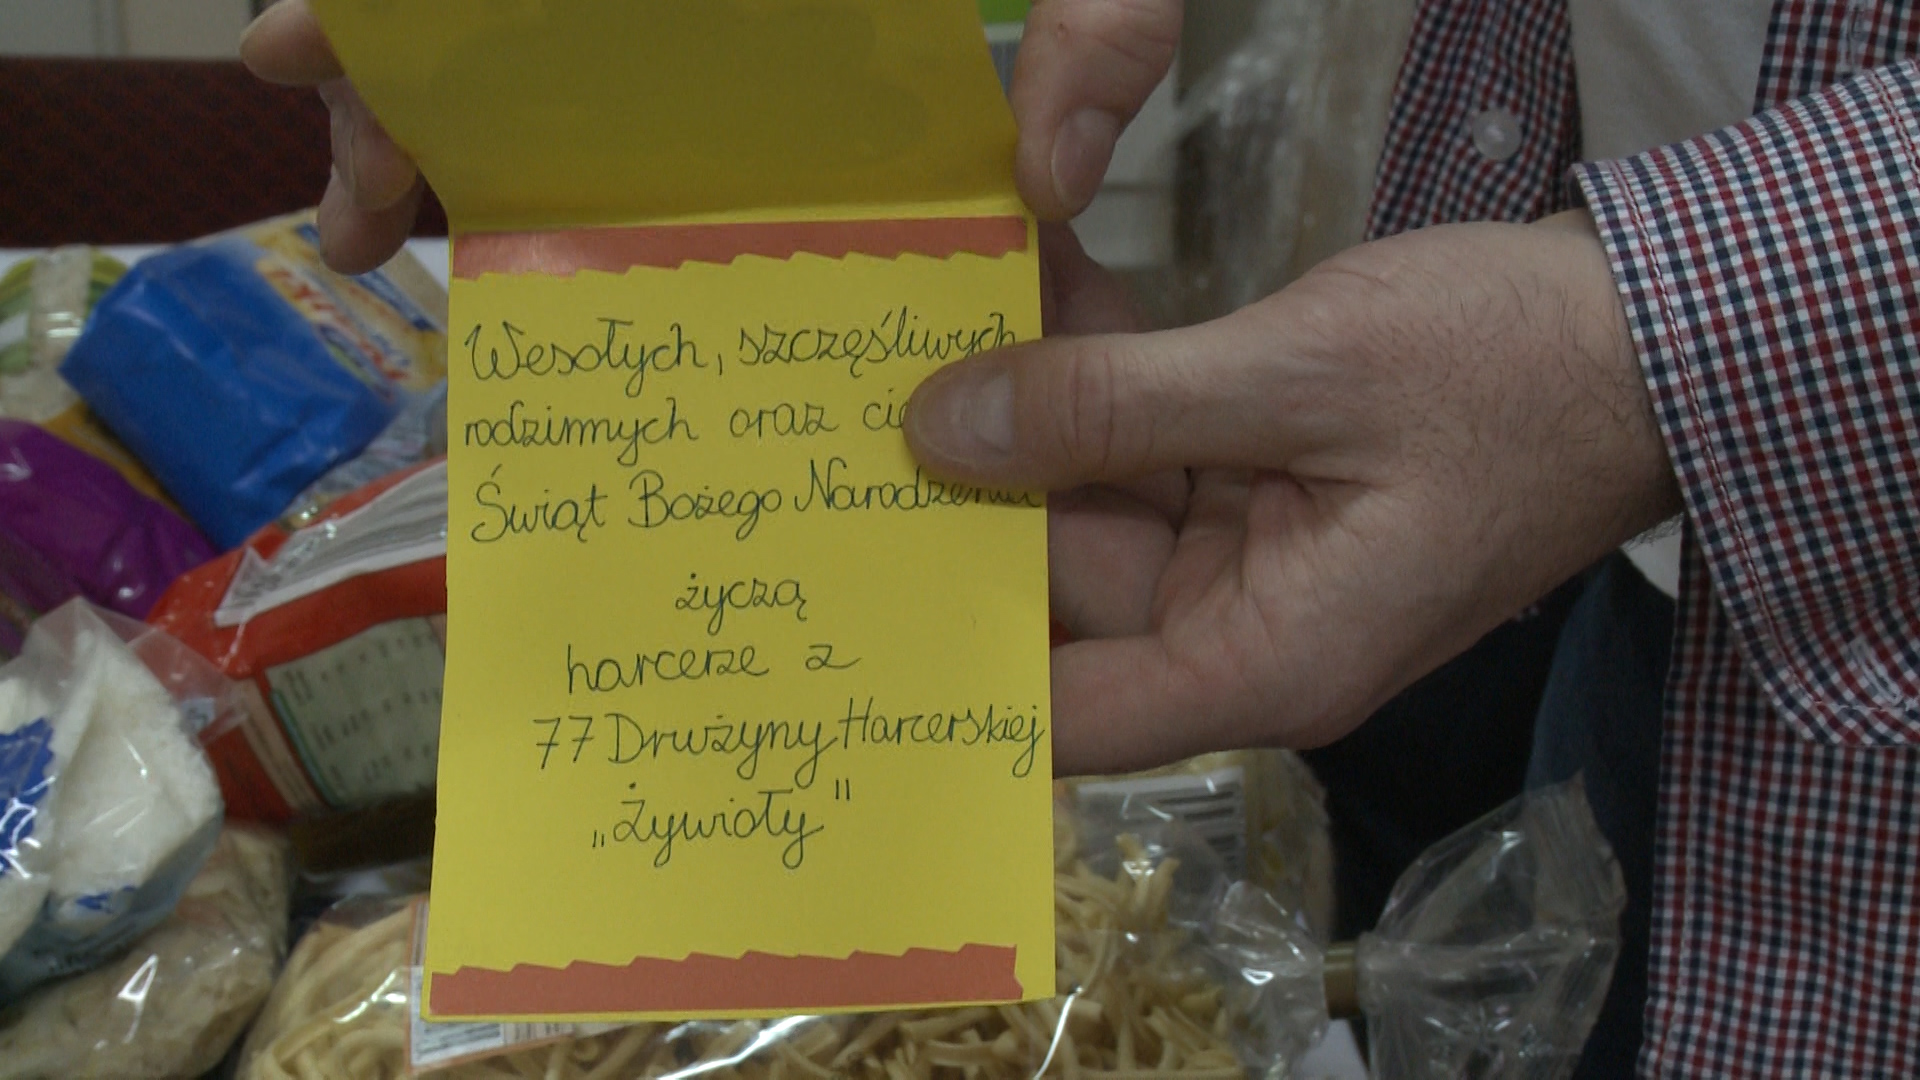 Wesołych, szczęśliwych
rodzinnych oraz
Świąt Bożego Narodzenia
życzą
harcerze z
77 Drużyny Harcerskiej
„Żywioły"